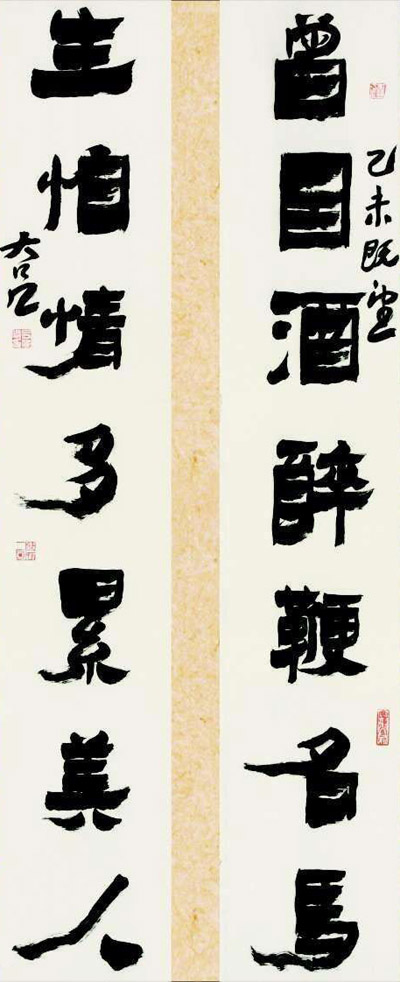 乙未既望
曾因酒醉鞭名馬
生怕情多累美人